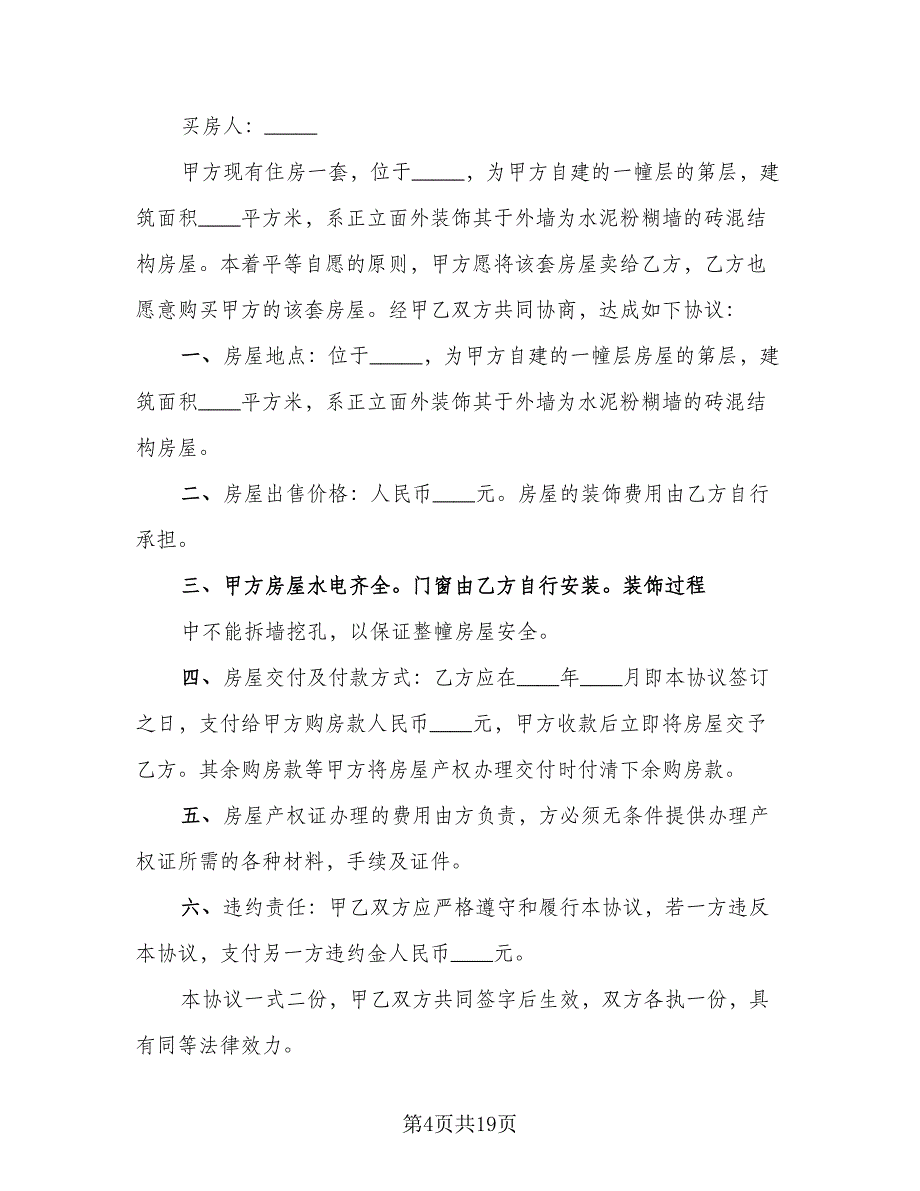 买房人：_____
甲方现有住房一套，位于_____，为甲方自建的一幢层的第层，建
筑面积____平方米，系正立面外装饰其于外墙为水泥粉糊墙的砖混结
构房屋。本着平等自愿的原则，甲方愿将该套房屋卖给乙方，乙方也
愿意购买甲方的该套房屋。经甲乙双方共同协商，达成如下协议：
一、房屋地点：位于_____，为甲方自建的一幢层房屋的第层，建
筑面积____平方米，系正立面外装饰其于外墙为水泥粉糊墙的砖混结
构房屋。
二、房屋出售价格：人民币____元。房屋的装饰费用由乙方自行
承担。
三、甲方房屋水电齐全。门窗由乙方自行安装。装饰过程
中不能拆墙挖孔，以保证整幢房屋安全。
四、房屋交付及付款方式：乙方应在____年____月即本协议签订
之日，支付给甲方购房款人民币____元，甲方收款后立即将房屋交予
乙方。其余购房款等甲方将房屋产权办理交付时付清下余购房款。
五、房屋产权证办理的费用由方负责，方必须无条件提供办理产
权证所需的各种材料，手续及证件。
六、违约责任：甲乙双方应严格遵守和履行本协议，若一方违反
本协议，支付另一方违约金人民币____元。
本协议一式二份，甲乙双方共同签字后生效，双方各执一份，具
有同等法律效力。
第4页共19页